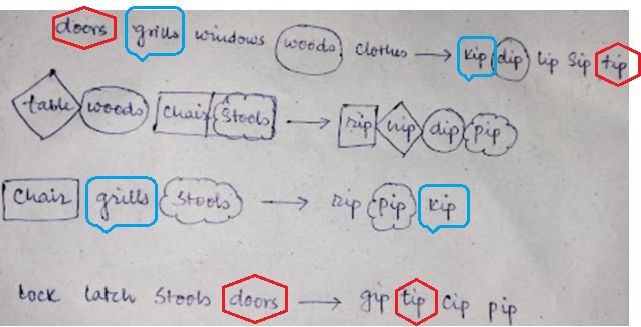 doors grills windows woods clothes → kip dip lip sip tip
table woods chair stools → rip dip pip
Chair grills stools → rip pip kip
Lock Latch Stools doors → gip tip cip pip